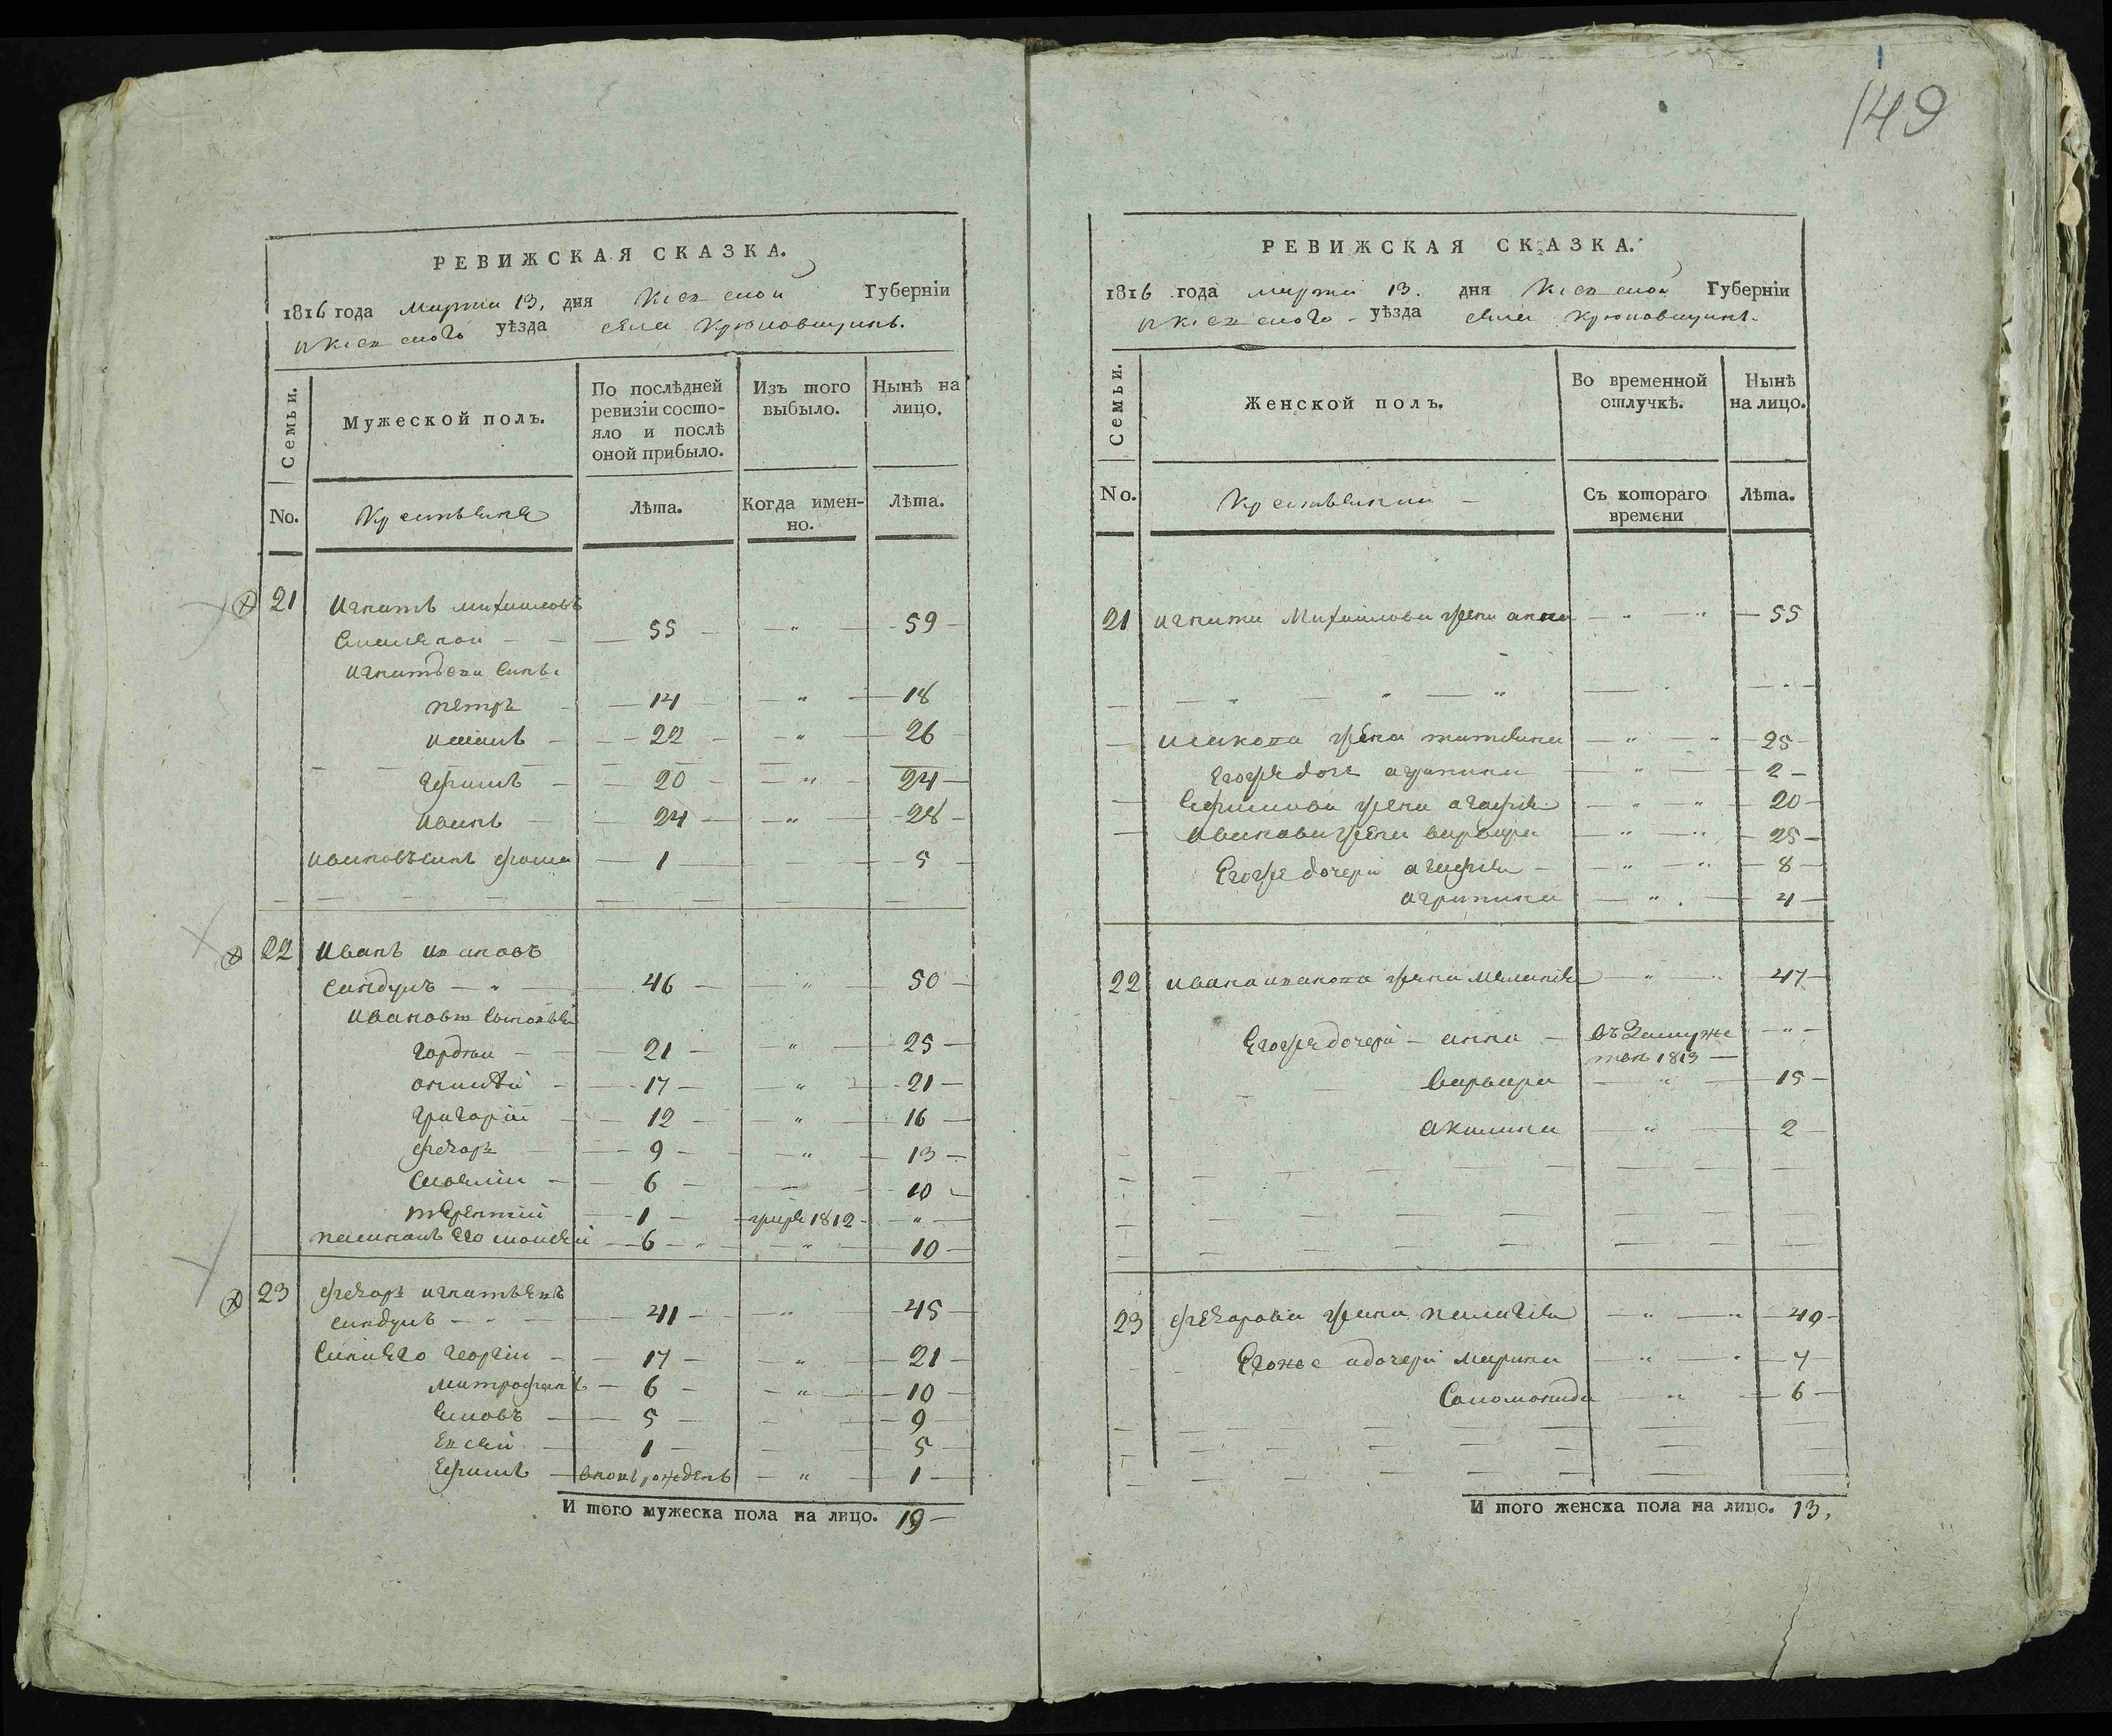 149
РЕВИЖСКАЯ СКАЗКА.
1816 года марта 13. дня Кіевской Губерніи
и Кіевского уѣзда села Крюковщинѣ.
Семьи.
Мужеской полъ.
По послѣдней ревизіи состояло и послѣ оной прибыло.
Изъ того выбыло.
Нынѣ на лицо.
No.
Крестьяне
Лѣта.
Когда именно.
Лѣта.
21 Игнатъ Михайловъ
— 55 — „ — 59 —
Игнатовы сыны
Петръ — 14 — „ — 18
— 22 — „ — 26
Ефимъ — 20 — „ — 24 —
Иванъ — 24 — „ — 28 —
Ивановъ сынъ Фома — 1 — 5 —
22 Иванъ Ивановъ
Сандулъ — „ — 46 — „ — 50 —
Ивановы сыновья
Гордѣй — 21 — „ — 25 —
— 17 — „ — 21 —
Григорій — 12 — „ — 16 —
Федоръ — 9 — „ — 13 —
— 6 — 10 —
Терентій — 1 — 1812 — „ —
Пасынокъ его Моисей — 6 — „ — 10 —
23 Федоръ Игнатьевъ
Сандулъ — „ — 41 — „ — 45 —
Сыны его Георгій — 17 — „ — 21 —
Митрофанъ — 6 — „ — 10 —
— 5 — 9
— 1 — 5 —
Ефимъ — вновь рожденъ — „ — 1 —
И того мужеска пола на лицо. 19 —
РЕВИЖСКАЯ СКАЗКА.
1816 года марта 13. дня Кіевской Губерніи
и Кіевского уѣзда села Крюковщинѣ.
Семьи.
Женской полъ.
Во временной отлучкѣ.
Нынѣ на лицо.
No.
Крестьянки —
Съ котораго времени
Лѣта.
21 Игната Михайлова жена Анна — „ — „ — 55
— „ — „ — „
жена Татьяна — „ — „ — 25 —
Егоже дочь Агрипина — „ — 2 —
Ефимова жена Агафія — „ — „ — 20 —
Иванова жена Варвара — „ — „ — 25 —
Егоже дочери Агафія — „ — „ — 8 —
Агрипина — „ — 4 —
22 Ивана Иванова жена Меланія — „ — „ — 47 —
Егоже дочери — Анна — въ замужествѣ 1813 — „ —
Варвара — „ — 15 —
Акилина — „ — 2 —
23 Федорова жена Пелагія — „ — „ — 40 —
дочери Марина — „ — „ — 7 —
Соломонида — „ — 6 —
И того женска пола на лицо. 13.